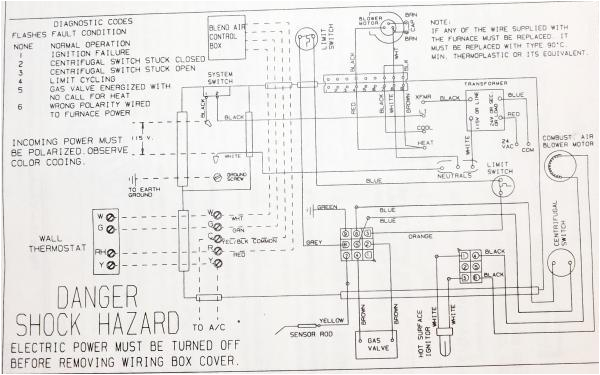 DIAGNOSTIC CODES
FLASHES FAULT CONDITION
NONE NORMAL OPERATION
1 IGNITION FAILURE
2 CENTRIFUGAL SWITCH STUCK CLOSED
3 CENTRIFUGAL SWITCH STUCK OPEN
4 LIMIT CYCLING
5 GAS VALVE ENERGIZED WITH
NO CALL FOR HEAT
6 WRONG POLARITY WIRED
TO FURNACE POWER
INCOMING POWER MUST
BE POLARIZED. OBSERVE
COLOR CODING.
115 V.
BLEND AIR
CONTROL
BOX
SYSTEM
SWITCH
BLACK
BLACK
WHITE
GROUND
SCREW
TO EARTH
GROUND
LIMIT
SWITCH
BLOWER
MOTOR
BRN
CAP
BRN
NOTE:
IF ANY OF THE WIRE SUPPLIED WITH
THE FURNACE MUST BE REPLACED. IT
MUST BE REPLACED WITH TYPE 90°C.
MIN. THERMOPLASTIC OR ITS EQUIVALENT.
BLACK
WHT
BLK
RED
BLACK
WHITE
XFMR
LI
COOL
HEAT
BLACK
TRANSFORMER
115V OR LINE
24V OR SEC.
BLUE
RED
24
VAC
COM
WHITE
NEUTRALS
LIMIT
SWITCH
COMBUST. AIR
BLOWER MOTOR
CENTRIFUGAL
SWITCH
BLUE
BLUE
BLUE
ORANGE
GREEN
GREY
BLACK
BLACK
WALL
THERMOSTAT
W
G
RH
Y
W
G
C
R
Y
WHT
GRN
YEL/BLK COMMON
RED
TO A/C
DANGER
SHOCK HAZARD
ELECTRIC POWER MUST BE TURNED OFF
BEFORE REMOVING WIRING BOX COVER.
YELLOW
SENSOR ROD
BROWN
BROWN
GAS
VALVE
HOT SURFACE
IGNITOR
WHITE
WHITE